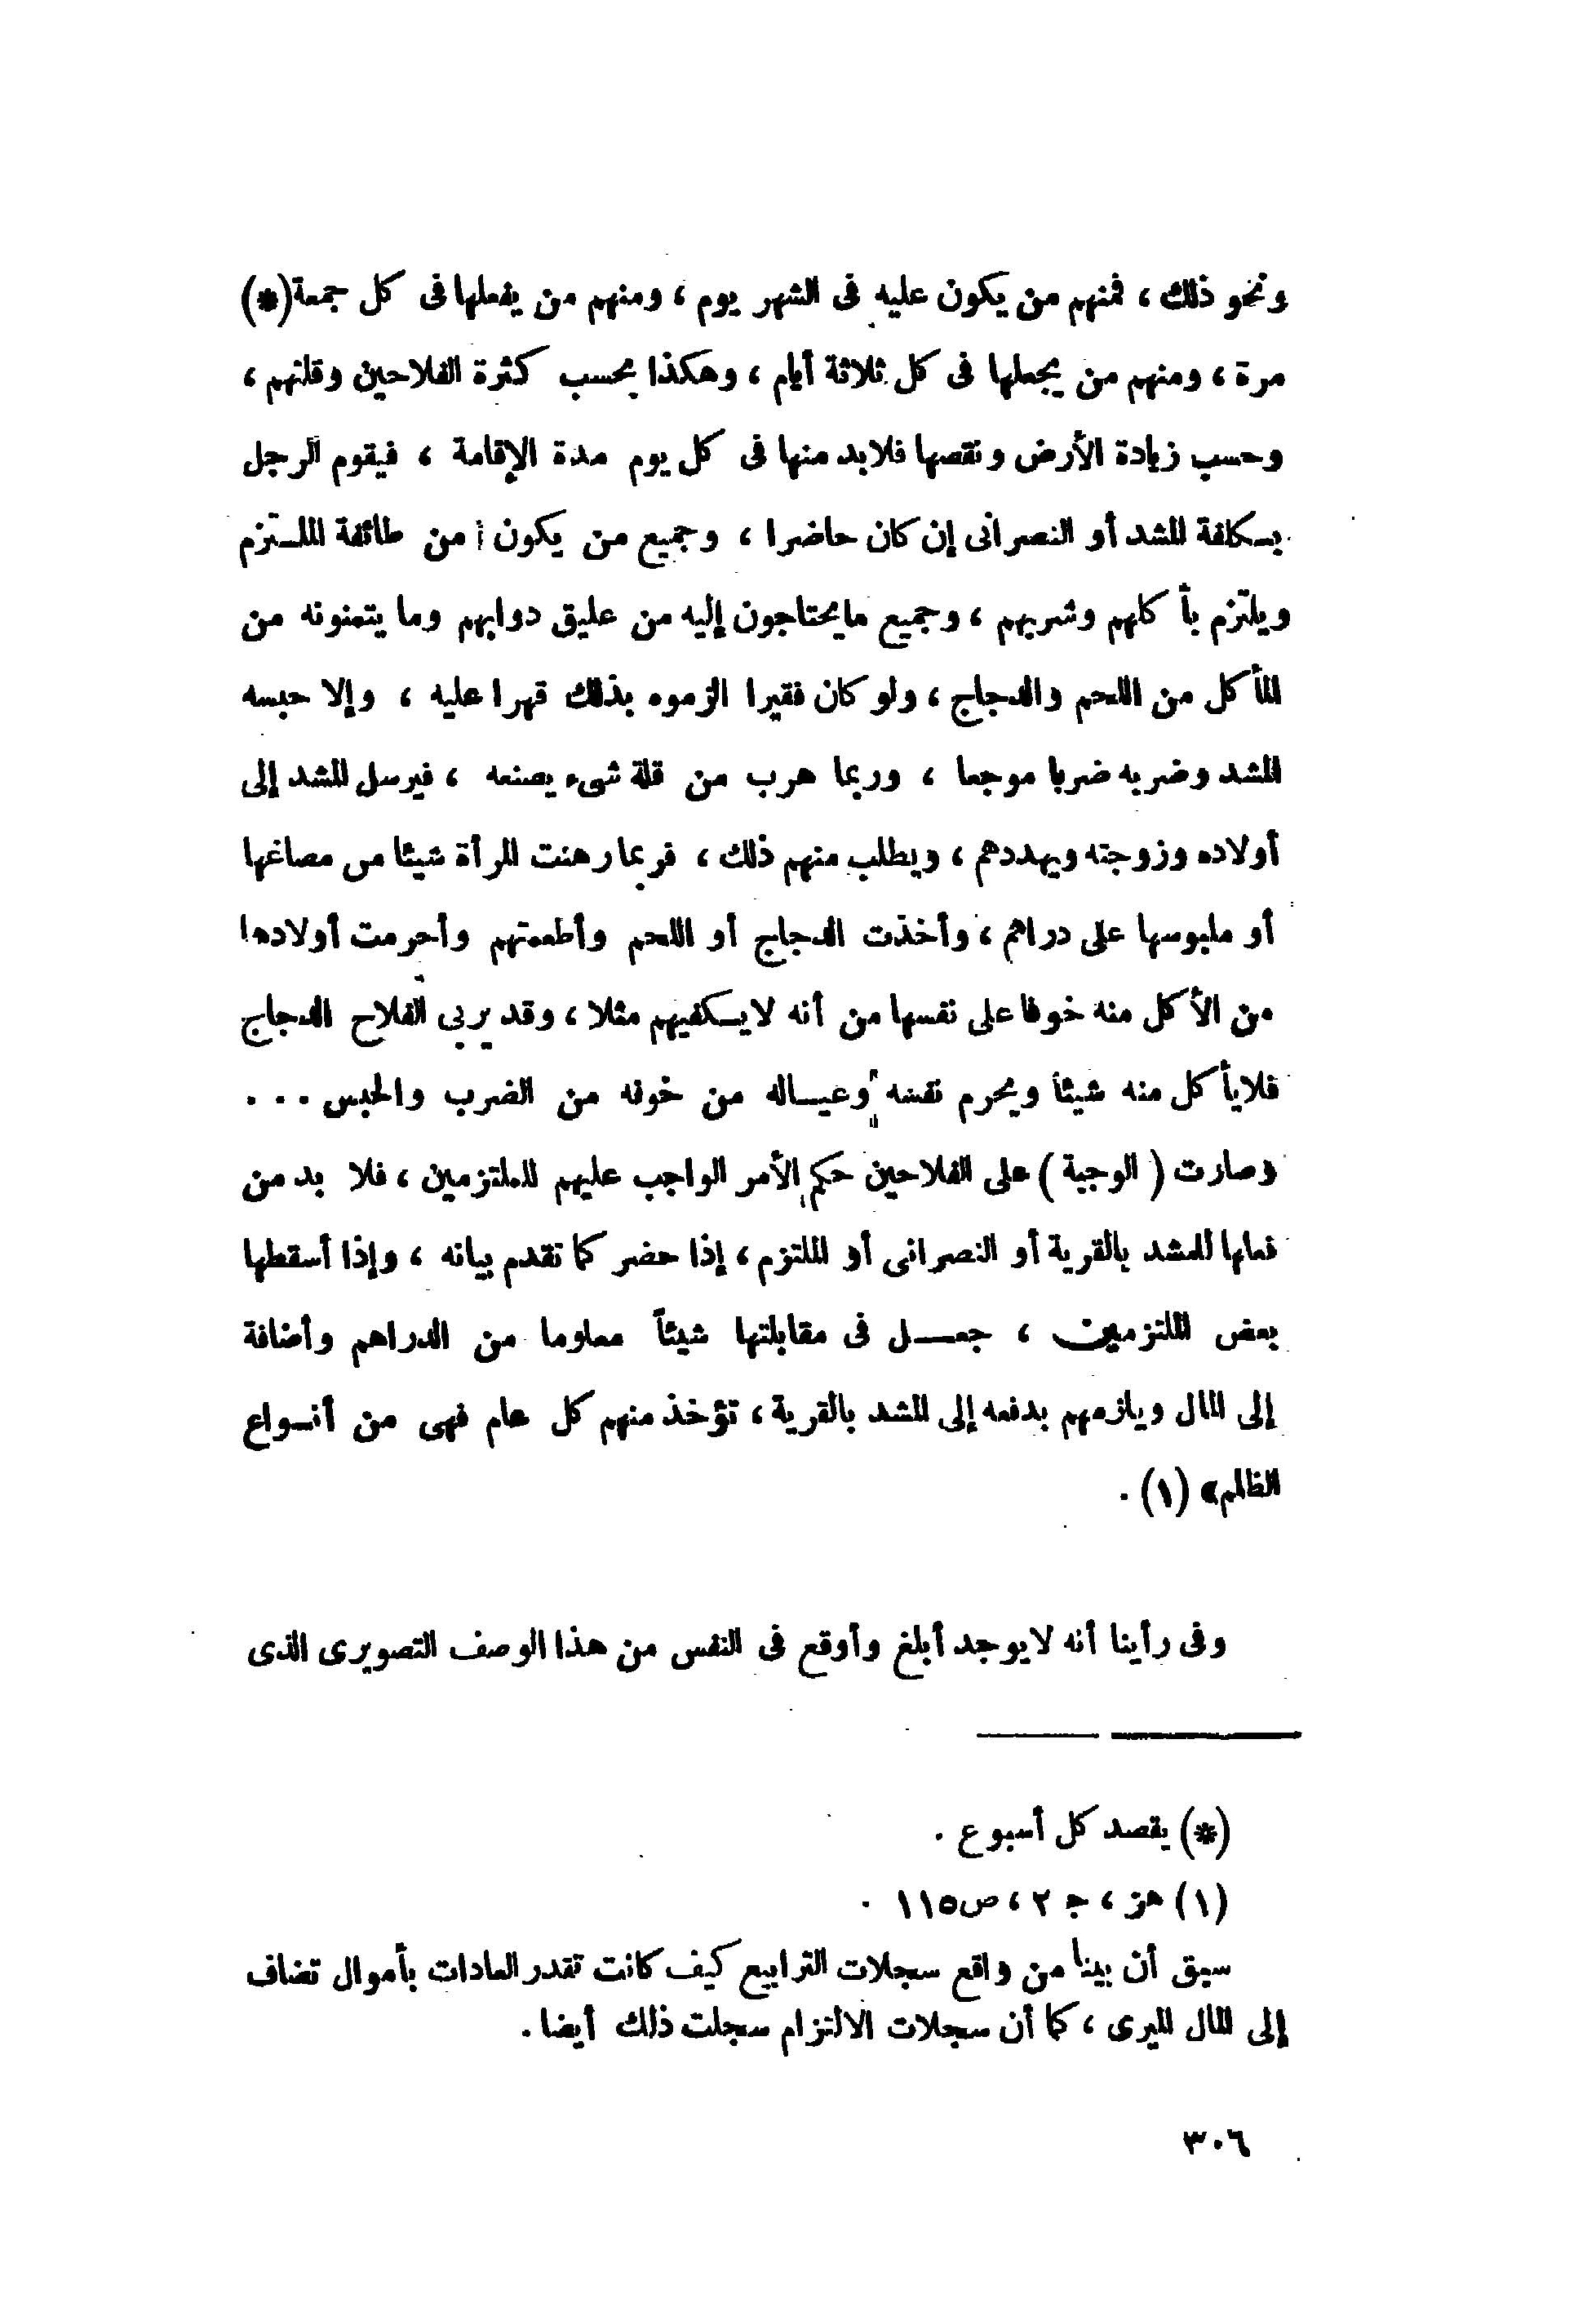 ونحو ذلك ، فمنهم من يكون عليه فى الشهر يوم ، ومنهم من يفعلها فى كل جمعة(*)
مرة ، ومنهم من يجعلها فى كل ثلاثة أيام ، وهكذا بحسب كثرة الفلاحين وقلتهم ،
وحسب زيادة الأرض ونقصها فلابد منها فى كل يوم مدة الإقامة ، فيقوم الرجل
بكلفة المشد أو النصرانى إن كان حاضرا ، وجميع من يكون من طائفة الملتزم
ويلتزم بأكلهم وشربهم ، وجميع مايحتاجون إليه من عليق دوابهم وما يتمنونه من
المأكل من اللحم والدجاج ، ولو كان فقيرا الزموه بذلك قهرا عليه ، وإلا حبسه
المشد وضربه ضربا موجعا ، وربما هرب من قلة شىء يصنعه ، فيرسل المشد إلى
أولاده وزوجته ويهددهم ، ويطلب منهم ذلك ، فربما رهنت المرأة شيئا من مصاغها
أو ملبوسها على دراهم ، وأخذت الدجاج أو اللحم وأطعمتهم وأحرمت أولادها
من الأكل منه خوفا على نفسها من أنه لايكفيهم مثلا ، وقد يربى الفلاح الدجاج
فلايأكل منه شيئا ويحرم نفسه وعياله من خوفه من الضرب والحبس . . .
وصارت ( الوجبة ) على الفلاحين حكم الأمر الواجب عليهم للملتزمين ، فلا بد من
فعلها للمشد بالقرية أو النصرانى أو الملتزم ، إذا حضر كما تقدم بيانه ، وإذا أسقطها
بعض الملتزمين ، جعل فى مقابلتها شيئاً معلوما من الدراهم وأضافة
إلى المال ويلزمهم بدفعه إلى المشد بالقرية ، تؤخذ منهم كل عام فهى من أنواع
الظلم» (١) .
وفى رأينا أنه لايوجد أبلغ وأوقع فى النفس من هذا الوصف التصويرى الذى
(*) يقصد كل أسبوع .
(١) هز ، ج ٢ ، ص١١٥ .
سبق أن بينا من واقع سجلات الترابيع كيف كانت تقدر العادات بأموال تضاف
إلى المال الميرى ، كما أن سجلات الالتزام سجلت ذلك أيضا .
٣٠٦